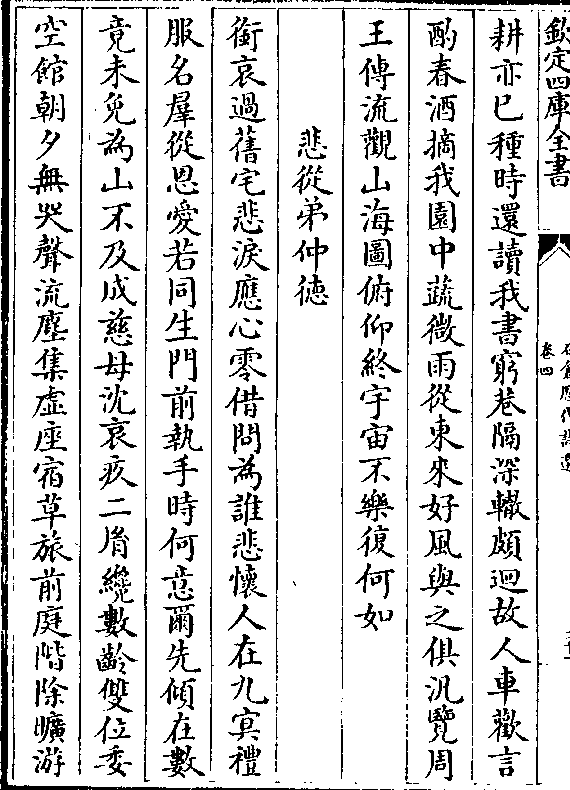 欽定四庫全書
卷四
耕亦已種時還讀我書窮巷隔深轍頗迴故人車歡言
酌春酒摘我園中蔬微雨從東來好風與之俱汎覽周
王傳流觀山海圖俯仰終宇宙不樂復何如
悲從弟仲徳
銜哀過舊宅悲淚應心零借問為誰悲懷人在九冥禮
服名羣從恩愛若同生門前執手時何意爾先傾在數
竟未免為山不及成慈母沈哀疚二𦙍纔數齡雙位委
空館朝夕無哭聲流塵集虚座宿草旅前庭階除曠游